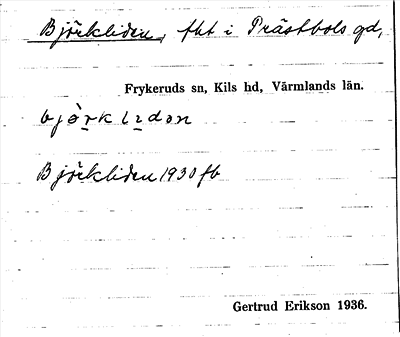 Björkliden, fht i Prästbols gd,
Frykeruds sn, Kils hd, Värmlands län.
Björkliden 1930 fb
Gertrud Erikson 1936.